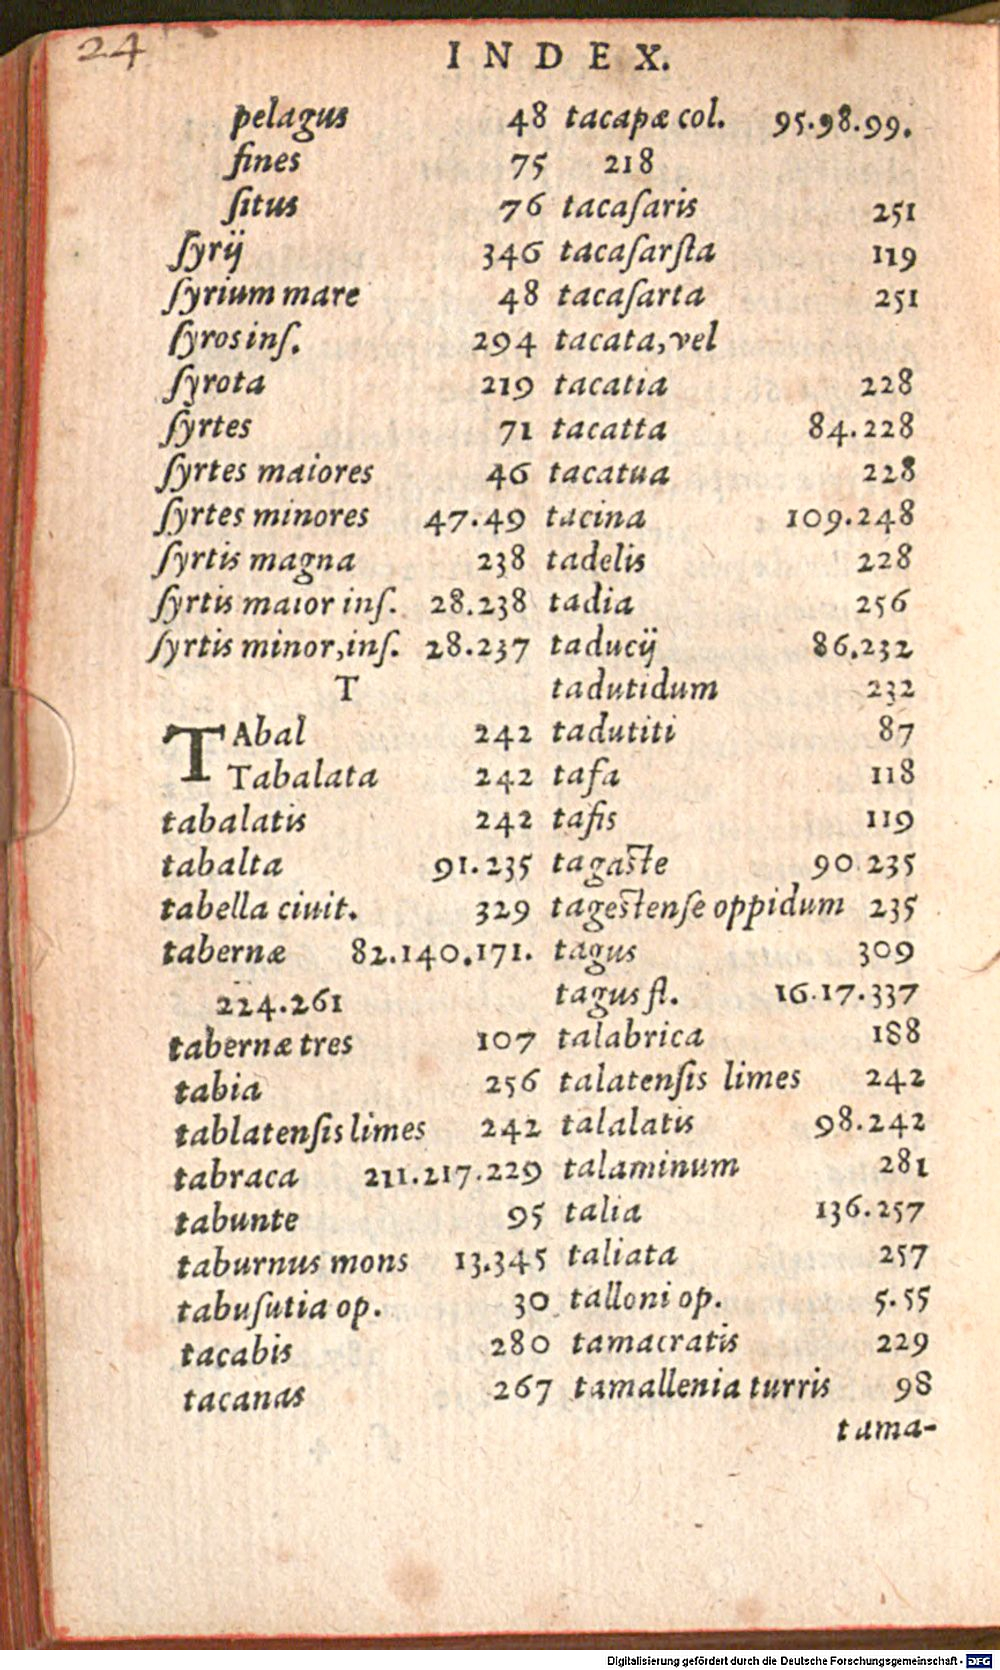 24
INDEX.
pelagus 48
fines 75
ſitus 76
ſyrij 346
ſyrium mare 48
ſyros inſ. 294
ſyrota 219
ſyrtes 71
ſyrtes maiores 46
ſyrtes minores 47.49
ſyrtis magna 238
ſyrtis maior inſ. 28.238
ſyrtis minor, inſ. 28.237
T
TAbal 242
Tabalata 242
tabalatis 242
tabalta 91.235
tabella ciuit. 329
tabernæ 82.140.171.
224.261
tabernæ tres 107
tabia 256
tablatenſis limes 242
tabraca 211.217.229
tabunte 95
taburnus mons 13.345
tabuſutia op. 30
tacabis 280
tacanas 267
tacapæ col. 95.98.99.
218
tacaſaris 251
tacaſarſta 119
tacaſarta 251
tacata, vel
tacatia 228
tacatta 84.228
tacatua 228
tacina 109.248
tadelis 228
tadia 256
taducij 86.232
tadutidum 232
tadutiti 87
tafa 118
tafis 119
tagaſte 90.235
tageſtenſe oppidum 235
tagus 309
tagus fl. 16.17.337
talabrica 188
talatenſis limes 242
talalatis 98.242
talaminum 281
talia 136.257
taliata 257
talloni op. 5.55
tamacratis 229
tamallenia turris 98
tama-
Digitalisierung gefördert durch die Deutsche Forschungsgemeinschaft - DFG